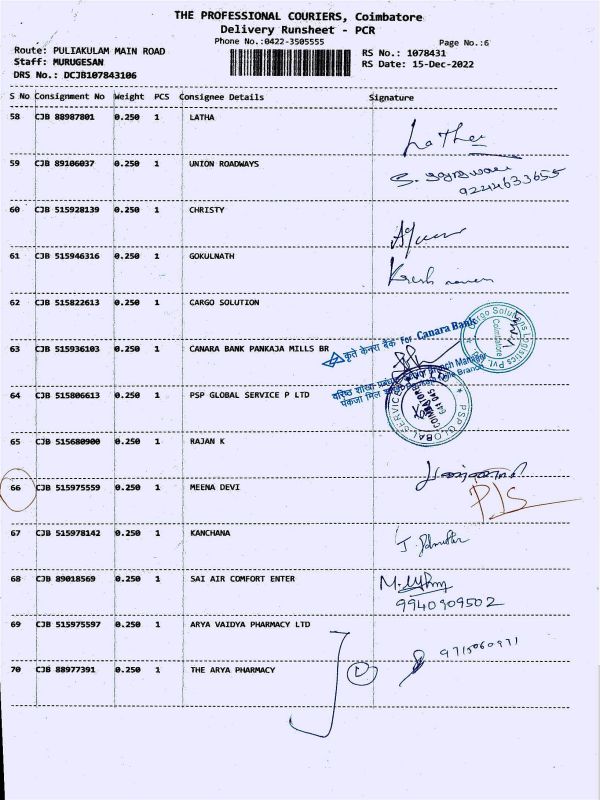 THE PROFESSIONAL COURIERS, Coimbatore
Delivery Runsheet - PCR
Phone No.:0422-3505555
Page No.:6
Route: PULIAKULAM MAIN ROAD
RS No.: 1078431
Staff: MURUGESAN
RS Date: 15-Dec-2022
DRS No.: DCJB107843106
S No Consignment No Weight PCS Consignee Details Signature
58 CJB 88987801 0.250 1 LATHA
Latha
59 CJB 89106037 0.250 1 UNION ROADWAYS
9244633655
60 CJB 515928139 0.250 1 CHRISTY
61 CJB 515946316 0.250 1 GOKULNATH
62 CJB 515822613 0.250 1 CARGO SOLUTION
Cargo Solutions Logistics Pvt
Coimbatore
63 CJB 515936103 0.250 1 CANARA BANK PANKAJA MILLS BR
कृते केनरा बैंक For Canara Bank
64 CJB 515806613 0.250 1 PSP GLOBAL SERVICE P LTD
PSP GLOBAL SERVICE
COIMBATORE
641 045
65 CJB 515680900 0.250 1 RAJAN K
66 CJB 515975559 0.250 1 MEENA DEVI
PIS
67 CJB 515978142 0.250 1 KANCHANA
68 CJB 89018569 0.250 1 SAI AIR COMFORT ENTER
9940909502
69 CJB 515975597 0.250 1 ARYA VAIDYA PHARMACY LTD
70 CJB 88977391 0.250 1 THE ARYA PHARMACY